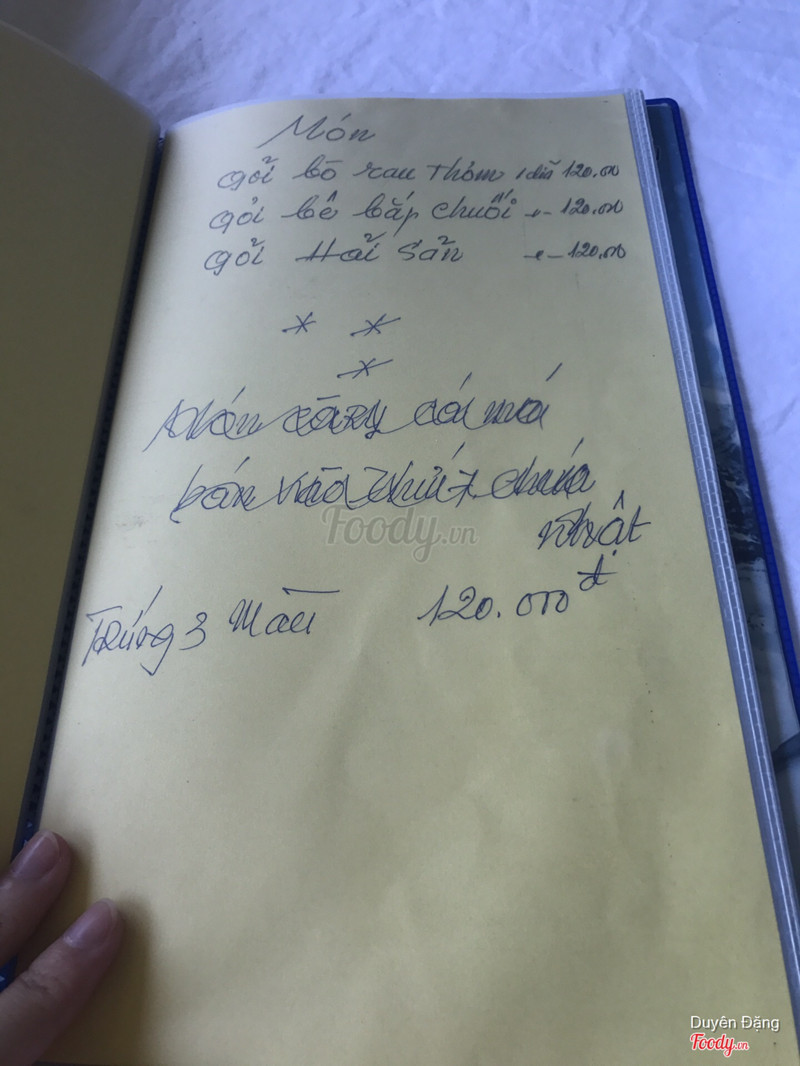 Món
Gỏi bò rau thơm 1 dĩa 120.000
Gỏi bê bắp chuối -"- 120.000
Gỏi Hải Sản -"- 120.000
* *
*
bán vào thứ 7, chúa
nhật
Trứng 3 Màu 120.000đ
Foody.vn
Duyên Đặng
Foody.vn